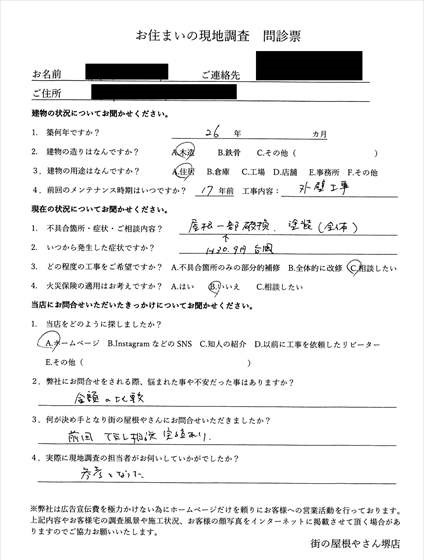 お住まいの現地調査 問診票
お名前 ご連絡先
ご住所
建物の状況についてお聞かせください。
1. 築何年ですか? 26 年 カ月
2. 建物の造りはなんですか? A.木造 B.鉄骨 C.その他( )
3. 建物の用途はなんですか? A.住居 B.倉庫 C.工場 D.店舗 E.事務所 F.その他
4. 前回のメンテナンス時期はいつですか? 17 年前 工事内容: 外壁工事
現在の状況についてお聞かせください。
1. 不具合箇所・症状・ご相談内容? 屋根一部破損、塗装(全体)
2. いつから発生した症状ですか? H30.9月 台風
3. どの程度の工事をご希望ですか? A.不具合箇所のみの部分的補修 B.全体的に改修 C.相談したい
4. 火災保険の適用はお考えですか? A.はい B.いいえ C.相談したい
当店にお問合せいただいたきっかけについてお聞かせください。
1. 当店をどのように探しましたか?
A.ホームページ B.InstagramなどのSNS C.知人の紹介 D.以前に工事を依頼したリピーター
E.その他( )
2. 弊社にお問合せをされる際、悩まれた事や不安だった事はありますか?
金額の比較
3. 何が決め手となり街の屋根やさんにお問合せいただきましたか?
前回
4. 実際に現地調査の担当者がお伺いしていかがでしたか?
参考になった
※弊社は広告宣伝費を極力かけない為にホームページだけを頼りにお客様への営業活動を行っております。
上記内容やお客様宅の調査風景や施工状況、お客様の顔写真をインターネットに掲載させて頂く場合が
ありますのでご協力お願いいたします。
街の屋根やさん堺店